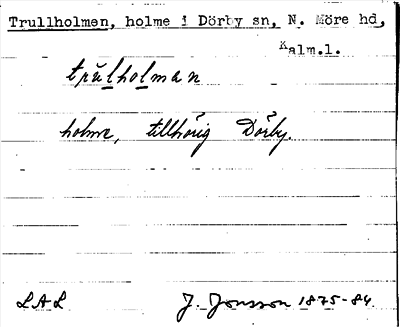 Trullholmen, holme i Dörby sn, N. Möre hd,
Kalm.l.
trŭlholman
holme, tillhörig Dörby.
LAL J. Jonsson 1875-84